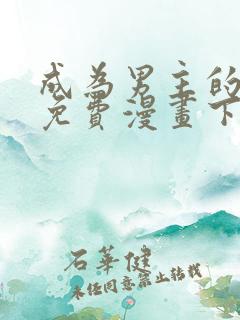 成為男主的
免費漫畫下
石華健
未经同意禁止转载